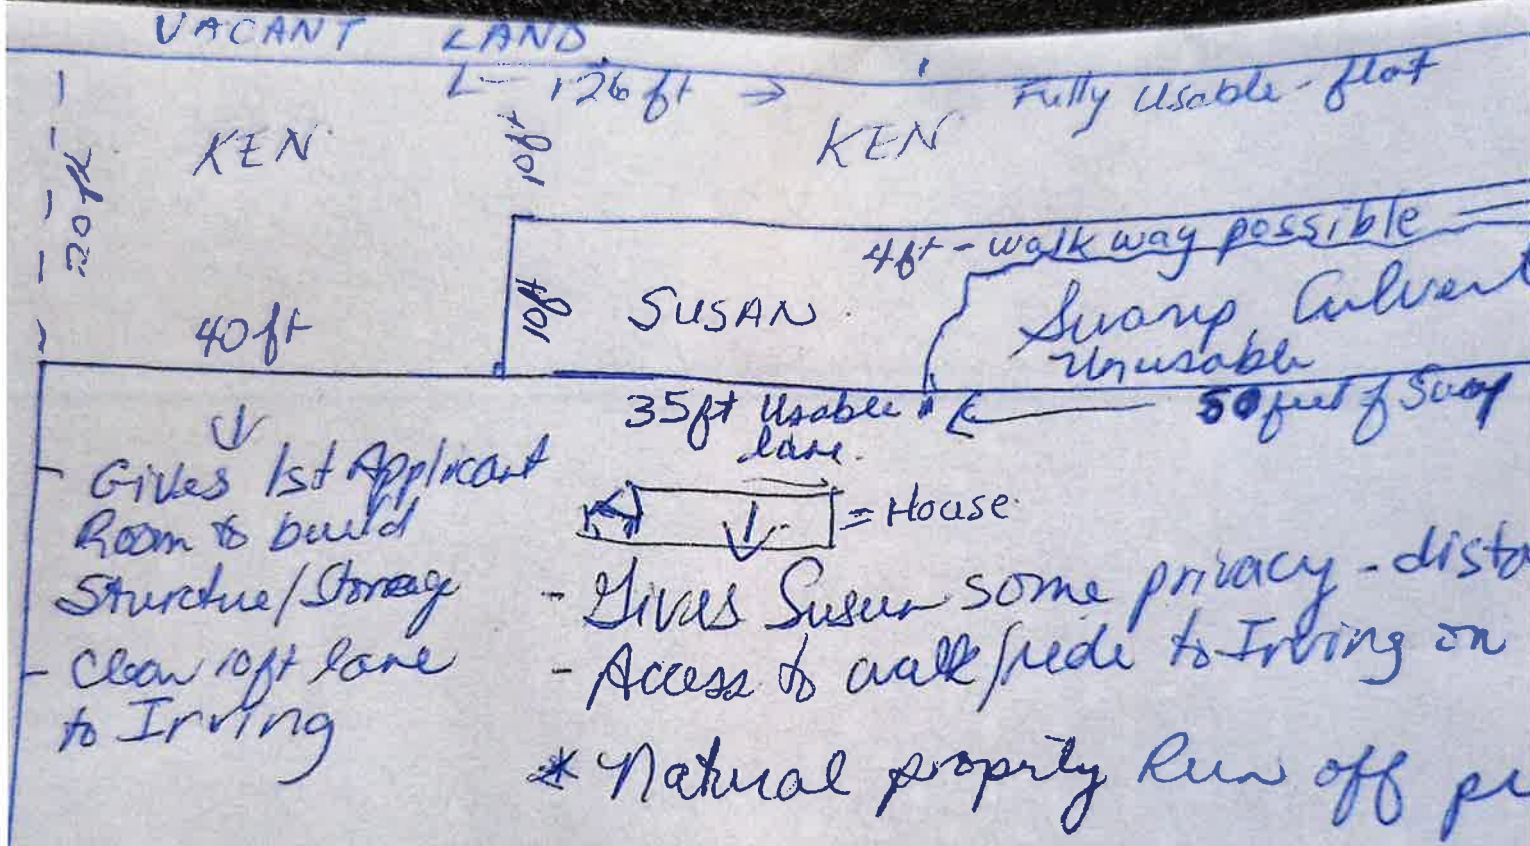 VACANT LAND
← 126 ft →
Fully Usable - flat
KEN
10ft
KEN
20ft
4ft - walk way possible
10ft
SUSAN
Swamp, Culvert
Unusable
40ft
35ft Usable
lane.
50 feet of
↓
- Gives 1st Applicant
Room to build
Structure/Storage
- Clear 10ft lane
to Irving
= House
- Gives Susan some privacy -
- Access to walk/ride to Irving on
* Natural property Run off